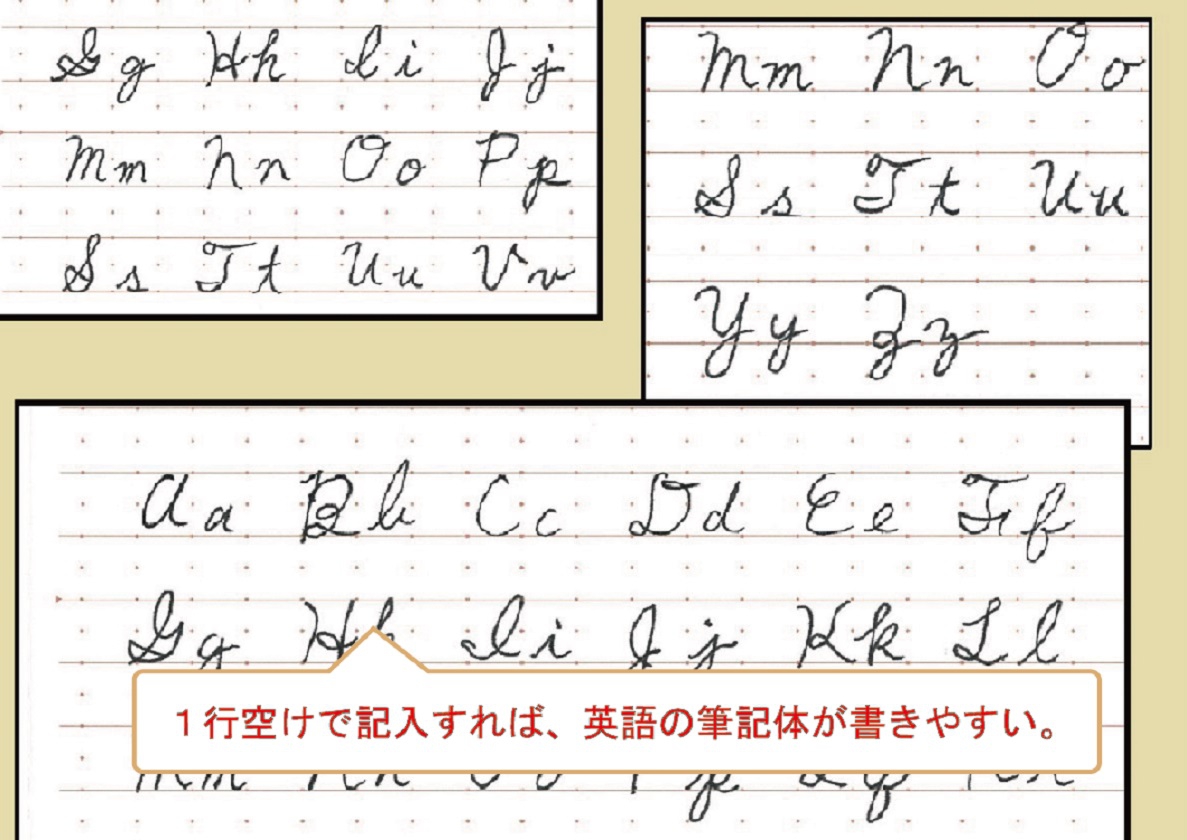 Gg Hh Ii Jj
Mm Nn Oo Pp
Ss Tt Uu Vv
Mm Nn Oo
Ss Tt Uu
Yy Zz
Aa Bb Cc Dd Ee Ff
Gg Hh Ii Jj Kk Ll
１行空けで記入すれば、英語の筆記体が書きやすい。
Mm Nn Oo Pp Qq Rr